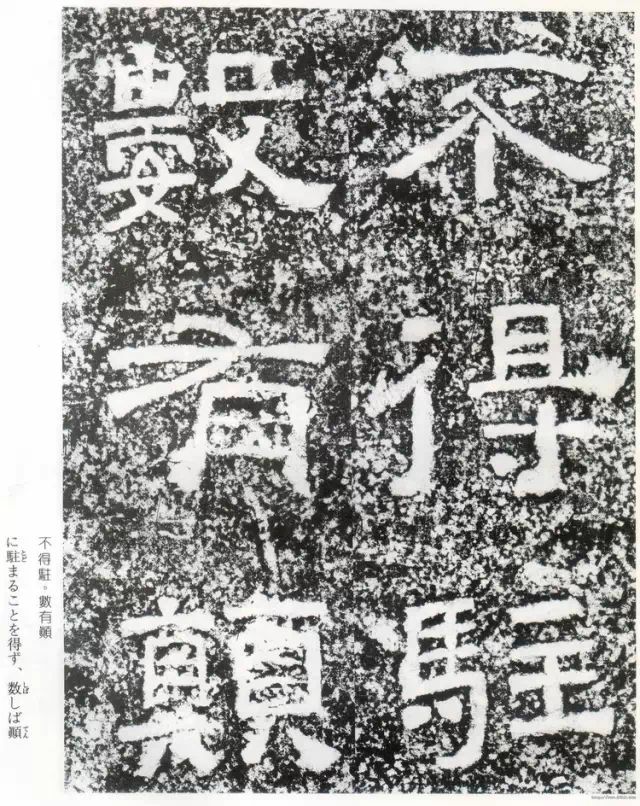 不得駐
數有顚
不得駐。數有顚
に駐まることを得ず、数しば顚